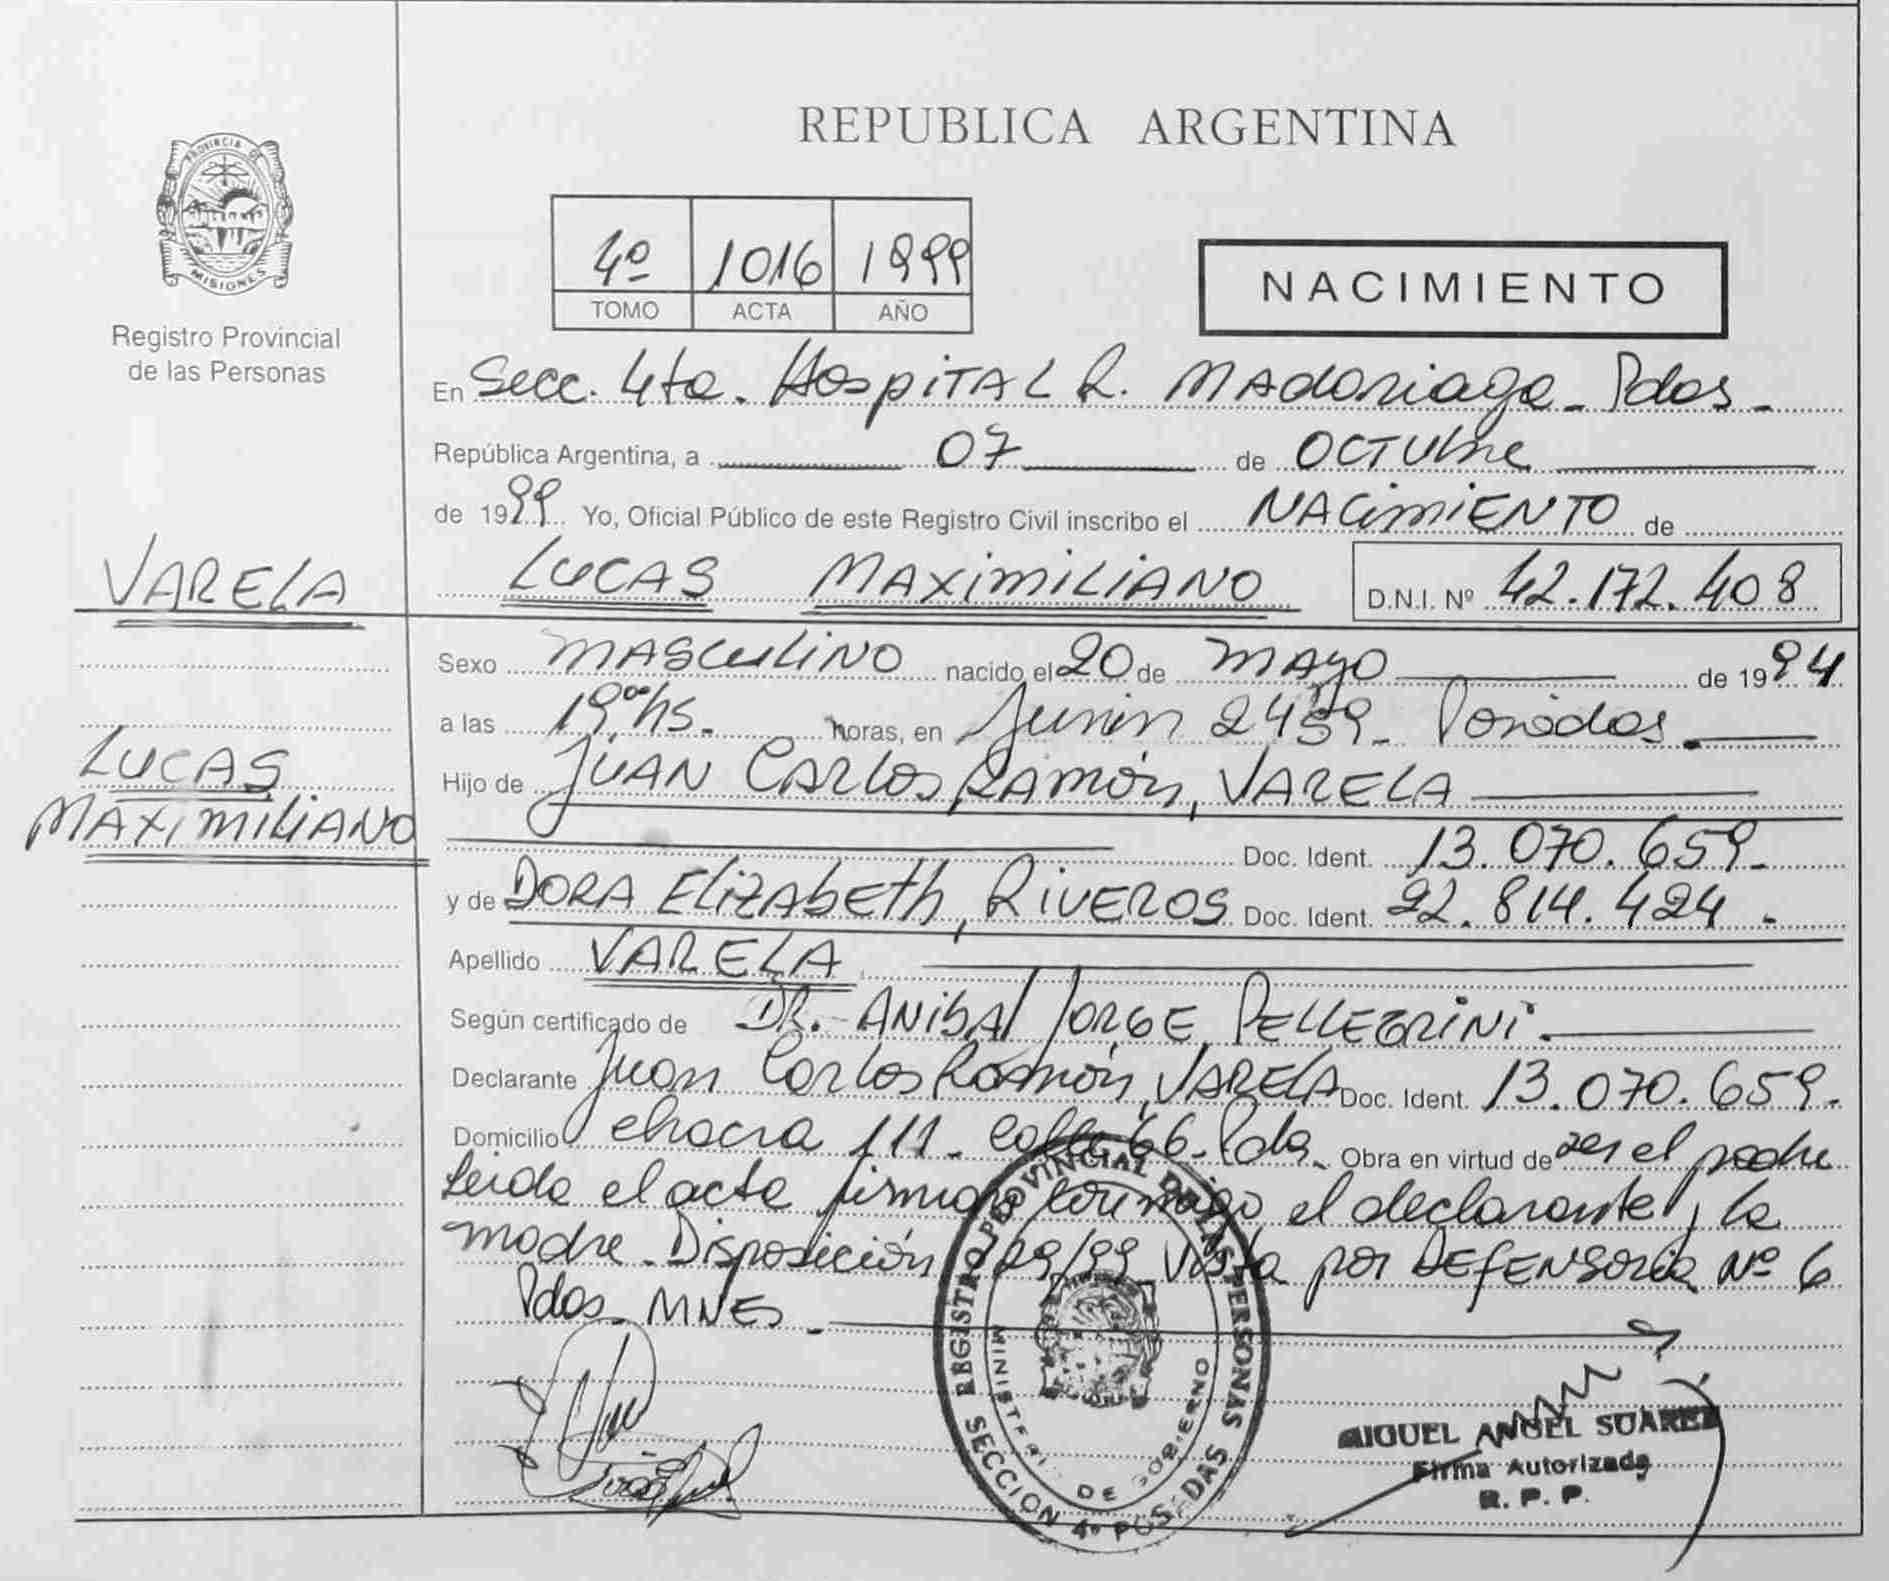 REPUBLICA ARGENTINA
PROVINCIA DE
MISIONES
Registro Provincial
de las Personas
4º 1016 1999
TOMO ACTA AÑO
NACIMIENTO
En Secc. 4ta. Hospital R. Madariaga - Pdas -
República Argentina, a 07 de Octubre
de 1999 Yo, Oficial Público de este Registro Civil inscribo el NACIMIENTO de
VARELA
LUCAS MAXIMILIANO D.N.I. Nº 42.172.408
Sexo MASCULINO nacido el 20 de MAYO de 1994
a las 19:00hs. horas, en Junin 2459 - Posadas
LUCAS
MAXIMILIANO
Hijo de JUAN CARLOS RAMÓN, VARELA
Doc. Ident. 13.070.659.
y de DORA ElizAbeth, RIVEROS Doc. Ident. 22.814.424.
Apellido VARELA
Según certificado de DR. ANIBAL JORGE PELLEGRINI.
Declarante Juan Carlos Ramón, VARELA Doc. Ident. 13.070.659.
Domicilio chacra 111 - calle 66 - Pdas. Obra en virtud de ser el padre
Leida el acta firman conmigo el declarante y la
madre - Disposición 129/99 Vista por DEFENSORIA Nº 6
Pdas - MNES -
REGISTRO PROVINCIAL DE LAS PERSONAS
MINISTERIO DE GOBIERNO
SECCION 4º POSADAS
MIGUEL ANGEL SUAREZ
Firma Autorizada
R. P. P.